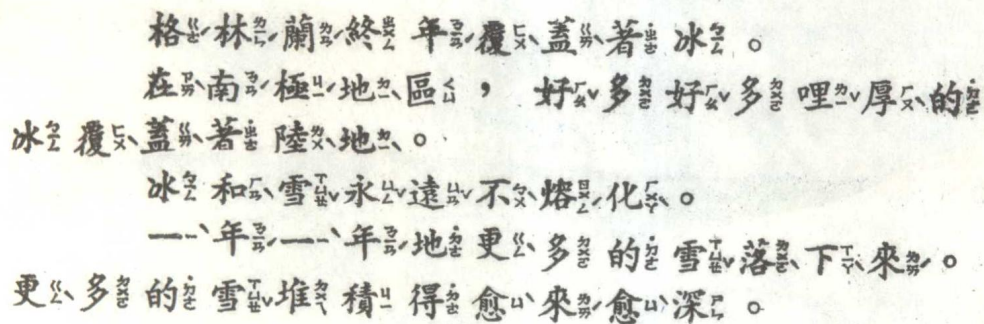 格林蘭終年覆蓋著冰。
在南極地區，好多好多哩厚的
冰覆蓋著陸地。
冰和雪永遠不熔化。
一年一年地更多的雪落下來。
更多的雪堆積得愈來愈深。